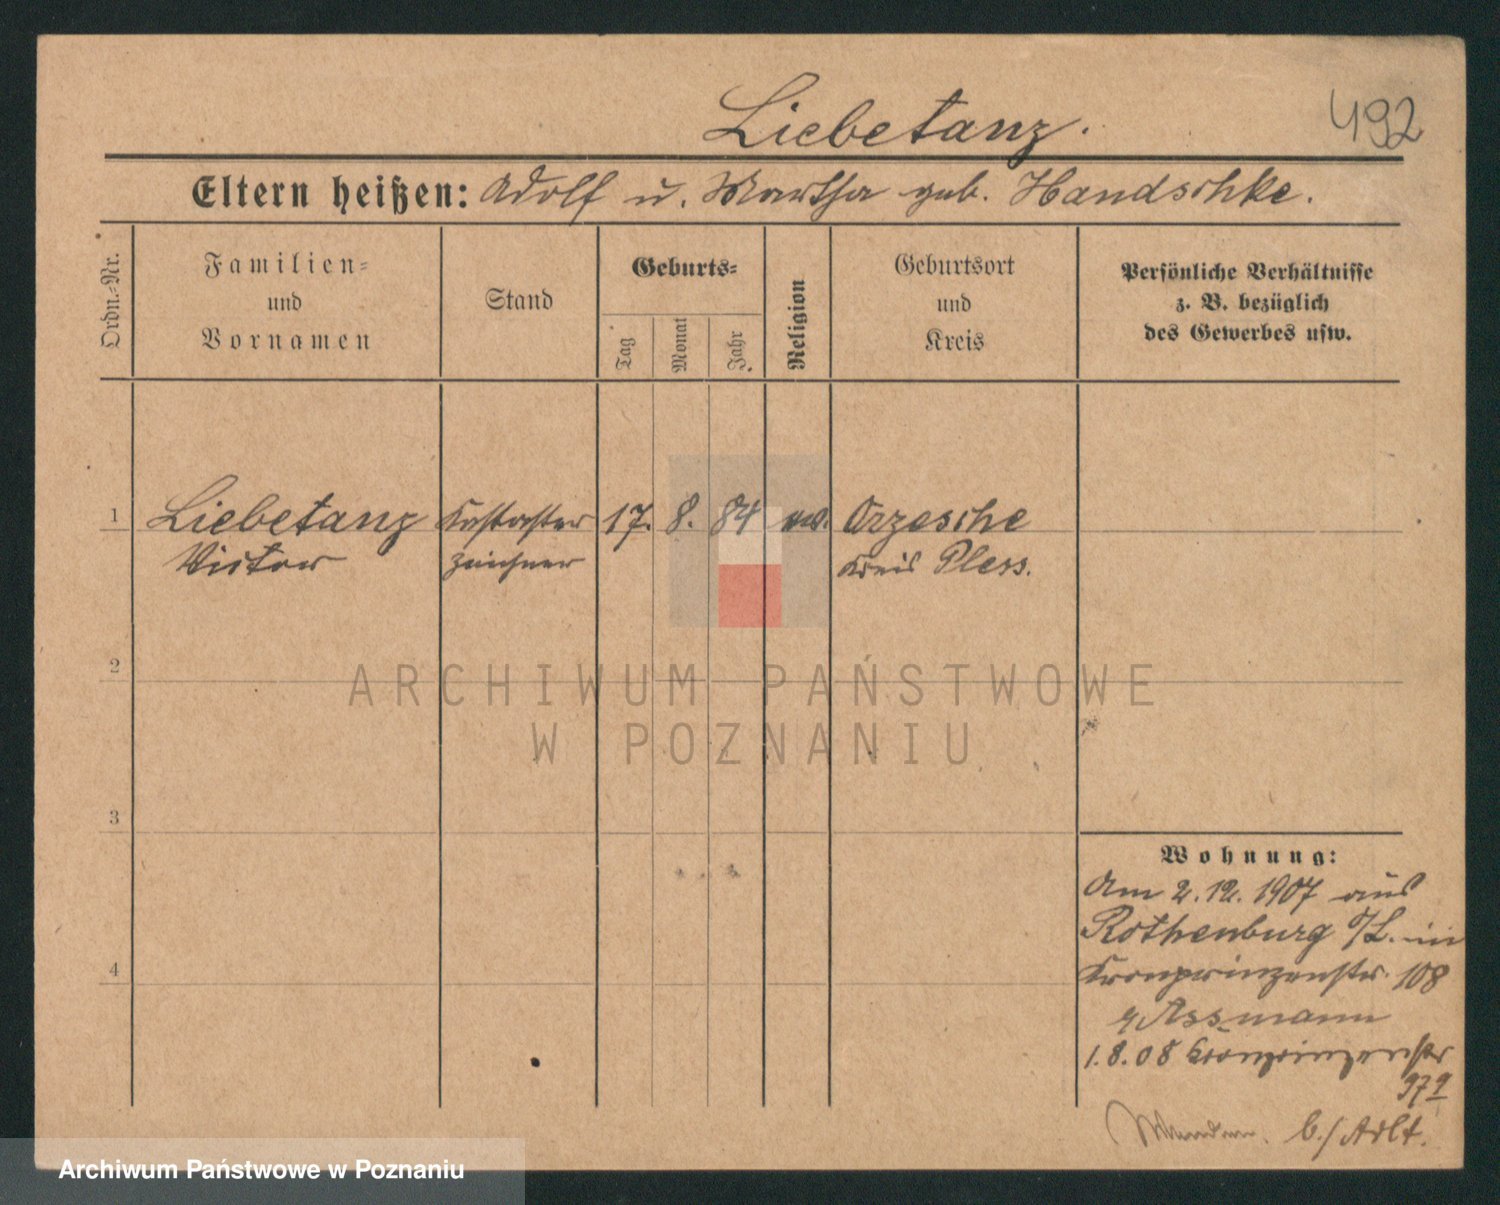 Liebetanz.
492
Eltern heißen: Adolf u. Martha geb. Handschke.
Ordn.-Nr.
Familien-
und
Vornamen
Stand
Geburts-
Tag
Monat
Jahr
Religion
Geburtsort
und
Kreis
Persönliche Verhältnisse
z. B. bezüglich
des Gewerbes usw.
1 Liebetanz Kataster 17. 8. 84 ev. Orzesche
Victor zeichner Kreis Pless.
2
ARCHIWUM PAŃSTWOWE
W POZNANIU
3
Wohnung:
Am 2.12.1907 aus
Rothenburg O/L. in
4
Kronprinzenstr. 108
Assmann
1.8.08 Kronprinzenstr
97
b./Adlt.
Archiwum Państwowe w Poznaniu